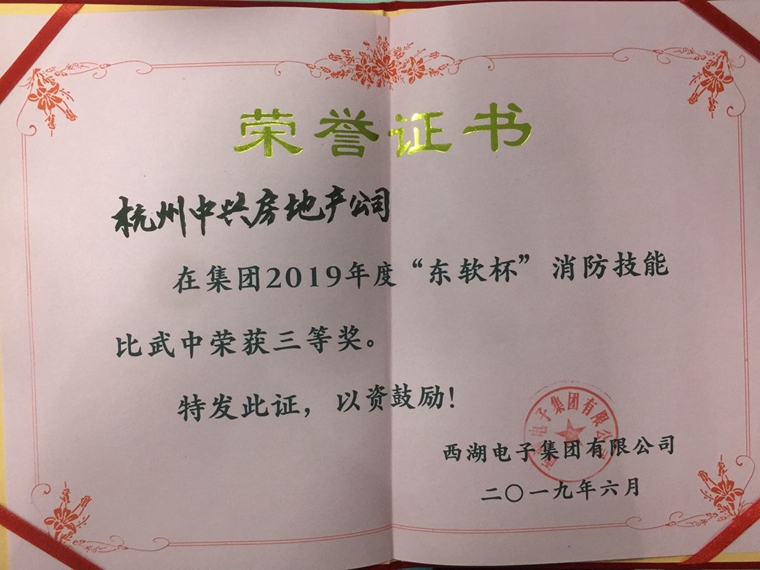 荣誉证书
杭州中兴房地产公司
在集团2019年度“东软杯”消防技能
比武中荣获三等奖。
特发此证，以资鼓励！
电子集团有限公司
西湖电子集团有限公司
二〇一九年六月